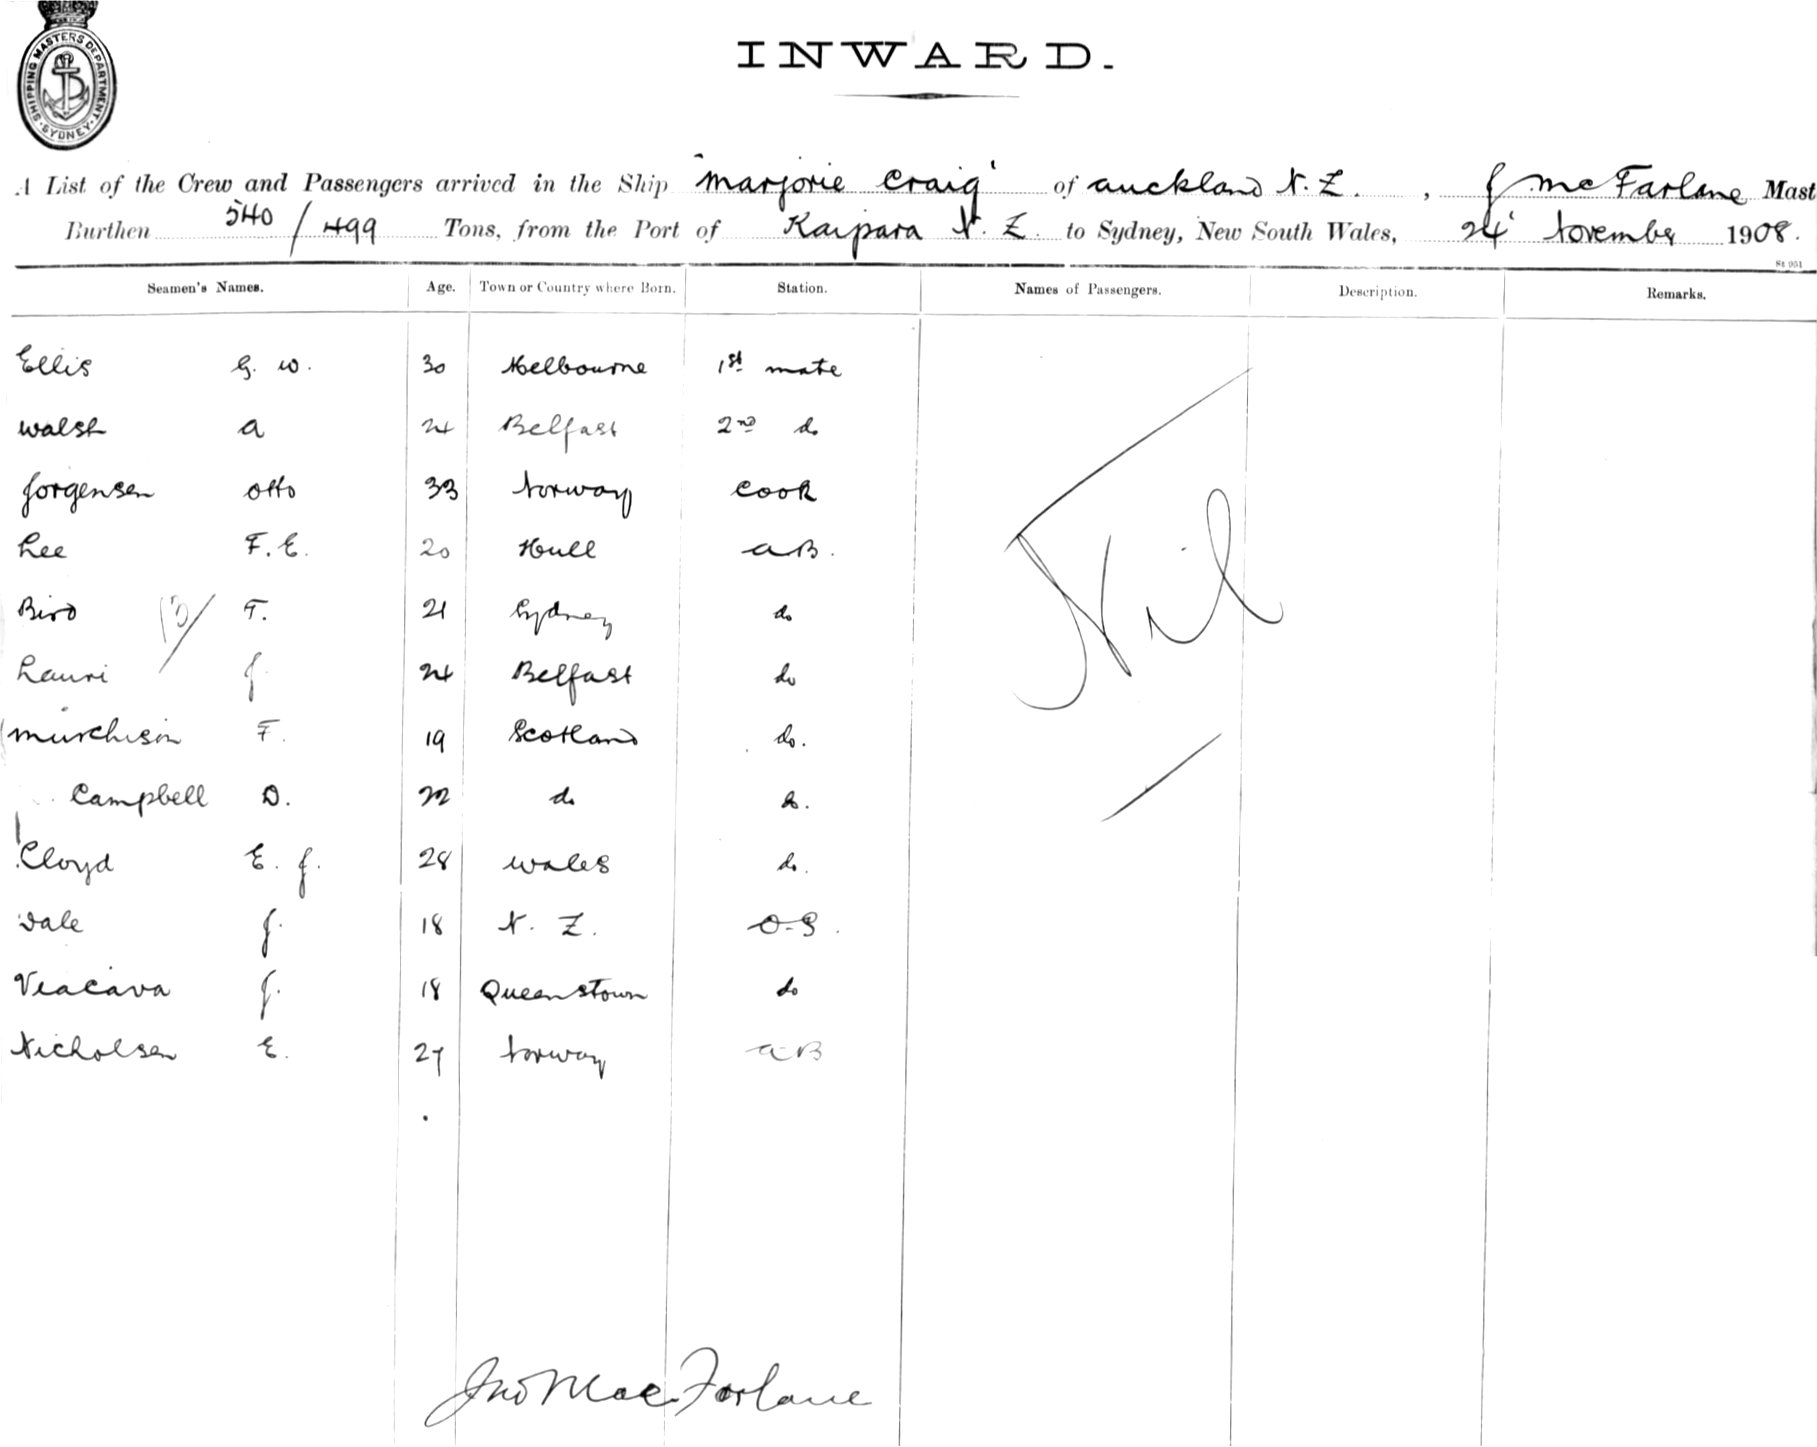 SHIPPING MASTERS DEPARTMENT. SYDNEY
INWARD.
A List of the Crew and Passengers arrived in the Ship "Marjorie Craig" of Auckland N. Z. , J McFarlane Mast
Burthen 540/499 Tons, from the Port of Kaipara N. Z. to Sydney, New South Wales, 24 November 1908.
St 951
Seamen's Names. Age. Town or Country where Born. Station. Names of Passengers. Description. Remarks.
Ellis G. W. 30 Melbourne 1st mate
Walsh A 24 Belfast 2nd do
Jorgensen Otto 33 Norway Cook
Lee F. E. 20 Hull AB.
Bird F. 21 Sydney do
Lauri J. 24 Belfast do
Murchison F. 19 Scotland do.
Campbell D. 22 do do.
Lloyd E. J. 28 Wales do.
Dale J. 18 N. Z. O.S.
Viacava J. 18 Queenstown do
Nicholsen E. 27 Norway AB
Nil
13/
Jno MacFarlane